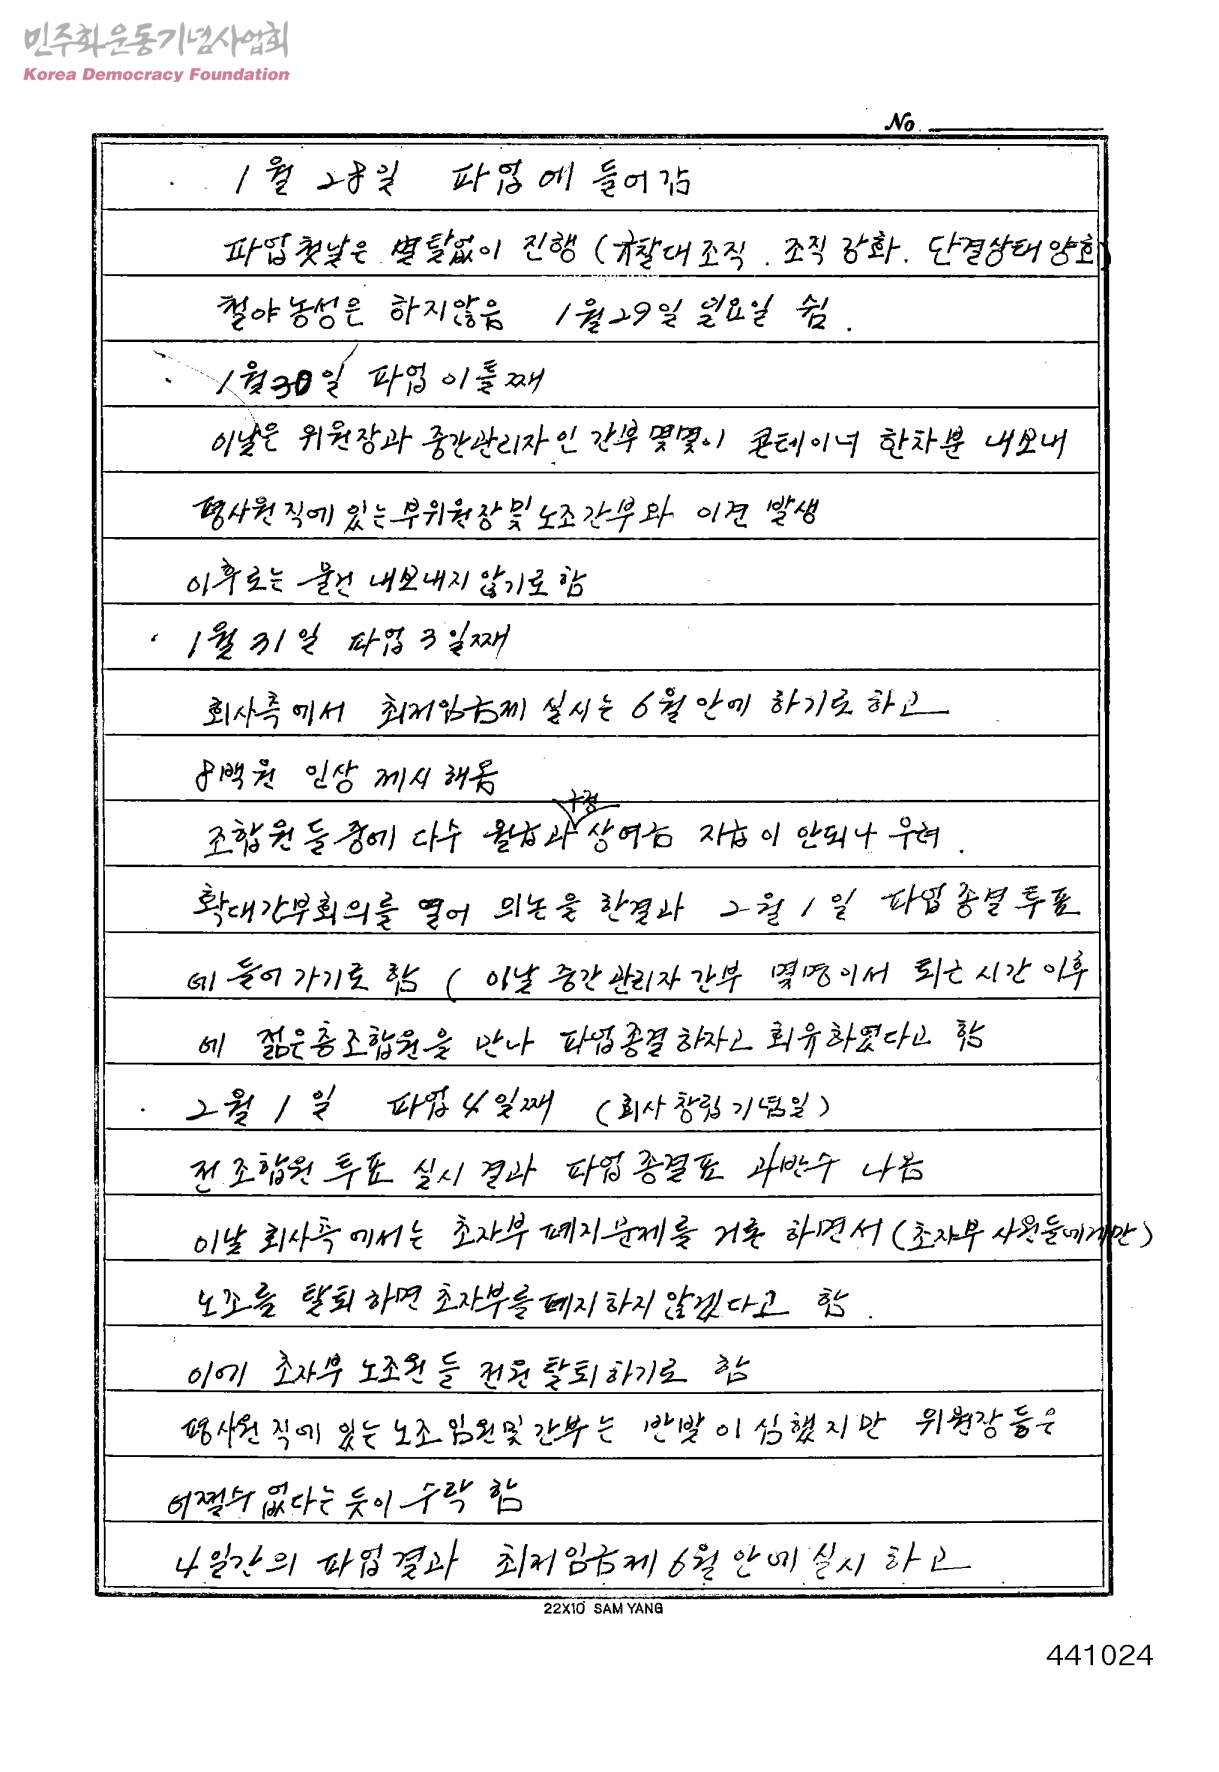 민주화운동기념사업회
Korea Democracy Foundation
No.
· 1월 28일 파업에 들어감
파업첫날은 별탈없이 진행 (규찰대조직. 조직강화. 단결상태양호)
철야농성은 하지않음 1월29일 일요일 쉼.
· 1월30일 파업이틀째
이날은 위원장과 중간관리자인 간부몇몇이 콘테이너 한차분 내보내
평사원직에 있는부위원장및노조간부와 이견 발생
이후로는 물건 내보내지않기로함
· 1월31일 파업3일째
회사측에서 최저임금제 실시는 6월안에 하기로하고
8백원 인상 제시해옴
구정
조합원들중에 다수 월급과 상여금 지급이 안되나 우려.
확대간부회의를 열어 의논을 한결과 2월1일 파업종결투표
에 들어가기로 함 (이날 중간관리자간부 몇명이서 퇴근시간이후
에 젊은층조합원을 만나 파업종결하자고 회유하였다고 함
· 2월 1일 파업4일째 (회사창립기념일)
전조합원 투표 실시결과 파업종결표 과반수 나옴
이날 회사측에서는 초자부 폐지문제를 거론 하면서 (초자부사원들에게만)
노조를 탈퇴하면 초자부를폐지하지 않겠다고 함.
이에 초자부노조원들 전원탈퇴하기로 함
평사원직에 있는노조임원및간부는 반발이심했지만 위원장등은
어쩔수없다는듯이 수락 함
4일간의 파업결과 최저임금제6월안에실시하고
22X10 SAM YANG
441024